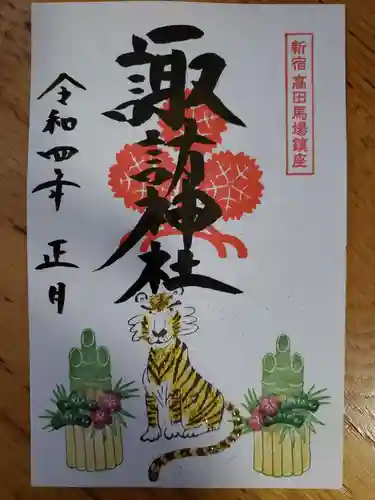 新宿高田馬場鎮座
諏訪神社
令和四年 正月